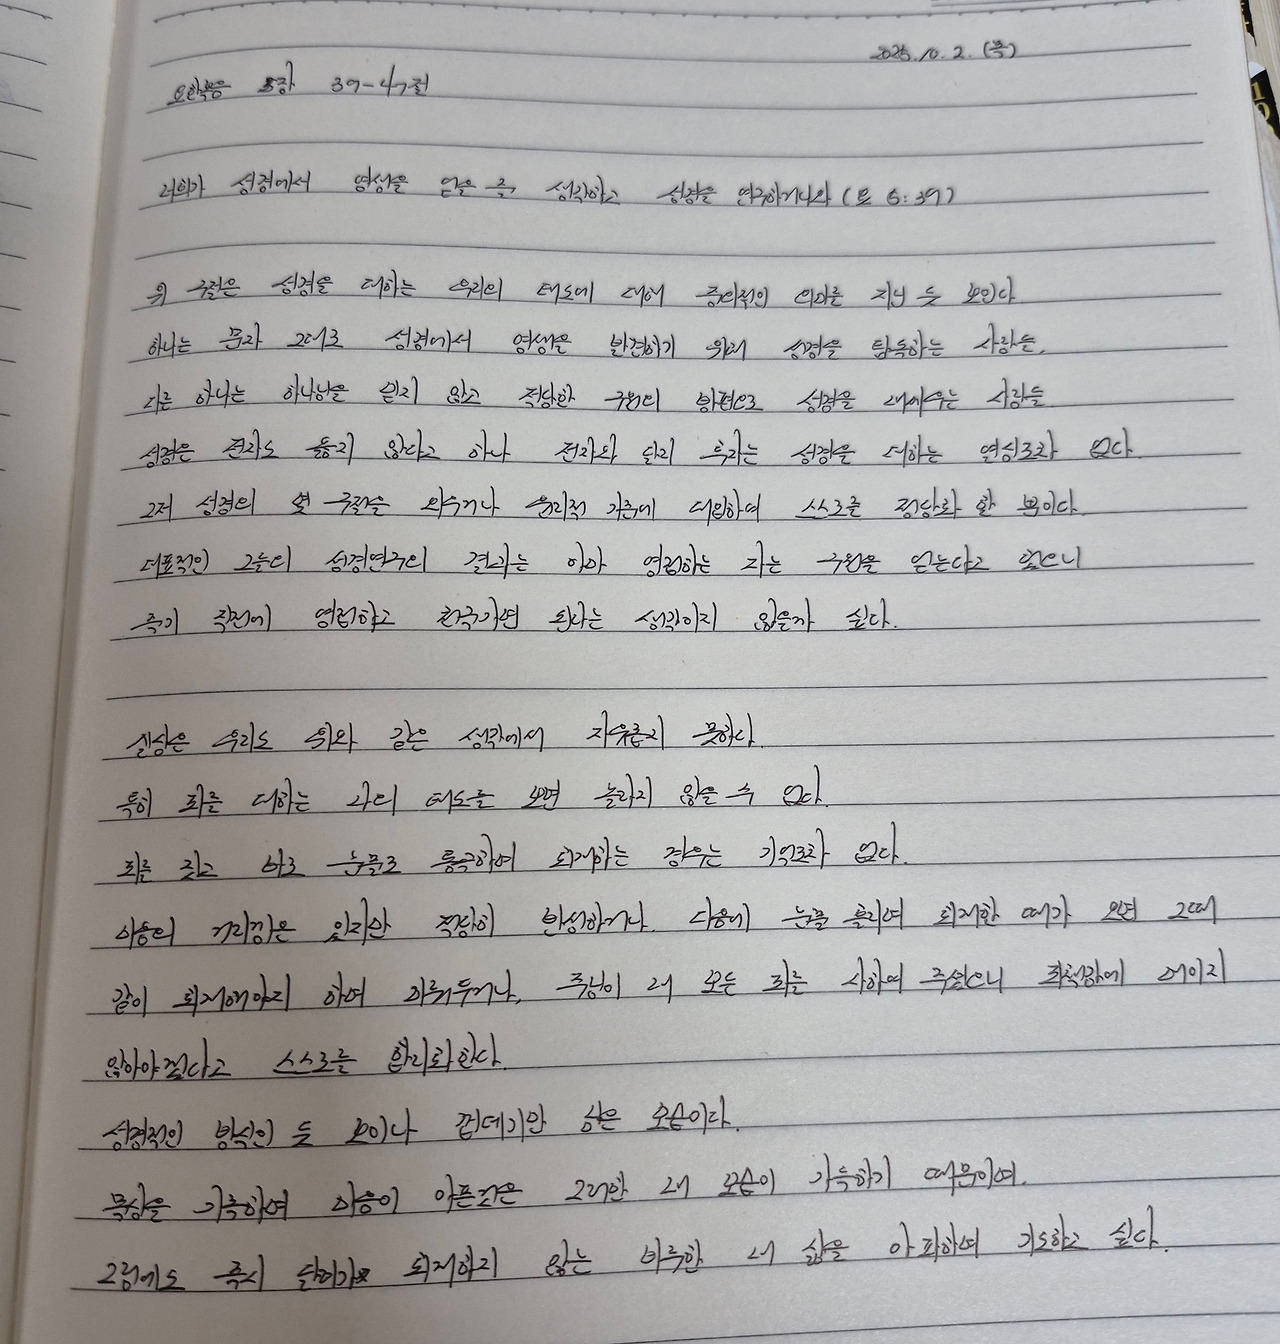 2025. 10. 2. (목)
요한복음 5장 39-47절
너희가 성경에서 영생을 얻을 줄 생각하고 성경을 연구하거니와 (요 5:39)
위 구절은 성경을 대하는 우리의 태도에 대해 중의적인 의미를 지닌 듯 보인다
하나는 문자 그대로 성경에서 영생을 발견하기 위해 성경을 탐독하는 사람들,
다른 하나는 하나님을 믿지 않고 적당한 구원의 방편으로 성경을 내세우는 사람들
성경은 전자도 옳지 않다고 하나 전자와 달리 후자는 성경을 대하는 열심조차 없다.
그저 성경의 몇 구절을 외우거나 윤리적 기준에 대입하여 스스로를 정당화 할 뿐이다.
대표적인 그들의 성경연구의 결과는 아마 영접하는 자는 구원을 얻는다고 했으니
죽기 직전에 영접하고 천국가면 된다는 생각이지 않을까 싶다.
실상은 우리도 위와 같은 생각에서 자유롭지 못하다.
특히 죄를 대하는 나의 태도를 보면 놀라지 않을 수 없다.
죄를 짓고 바로 눈물로 통곡하며 회개하는 경우는 기억조차 없다.
마음의 거리낌은 있지만 적당히 반성하거나 다음에 눈물 흘리며 회개할 때가 오면 그때
같이 회개해야지 하며 미뤄두거나, 주님이 내 모든 죄를 사하여 주셨으니 죄책감에 매이지
않아야겠다고 스스로를 합리화한다.
성경적인 방식인 듯 보이나 껍데기만 삼은 모습이다.
묵상을 기록하며 마음이 아픈것은 그러한 내 모습이 가득하기 때문이며.
그럼에도 즉시 달려가 회개하지 않는 비루한 내 삶을 아파하며 기도하고 싶다.